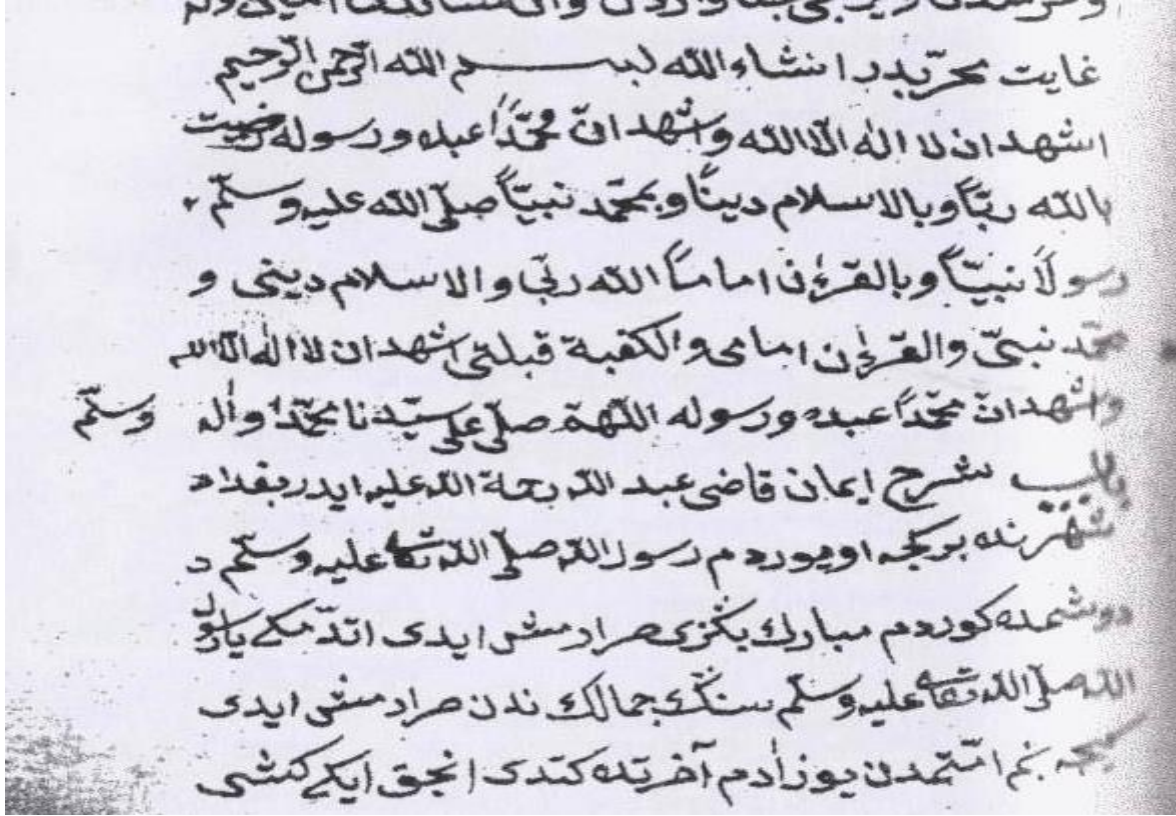 غايت مجرّبدر انشاء الله لبسم الله الرّحمن الرّحيم
اشهد ان لا اله الّا الله واشهد انّ محمّدًا عبده ورسوله رضيت
بالله ربّاً وبالاسلام دينًا وبمحمّد نبيّاً صلّى الله عليه وسلّم
رسولاً نبيّاً وبالقرءٰن اماماً الله ربّى والاسلام دينى و
محمّد نبيّ والقرءٰن امامى والكعبة قبلتى اشهد ان لا اله الّا الله
واشهد انّ محمّدًا عبده ورسوله اللّهمّ صلّى على سيّدنا محمّد وآله وسلّم
شرح ايمان قاضى عبد الله رحمة الله عليه ايدر بغداد
شهرنده بر كجه اويوردم رسول الله صلّى الله تعالى عليه وسلّم د
دوشمده كوردم مبارك بكزى صرارمش ايدى اتدّمكه يا رسول
الله صلّى الله تعالى عليه وسلّم سنڭ جمالك ندن صرارمش ايدى
بنم امّتمدن يوز آدم آخرته كتدى انجق ايكى كمشى